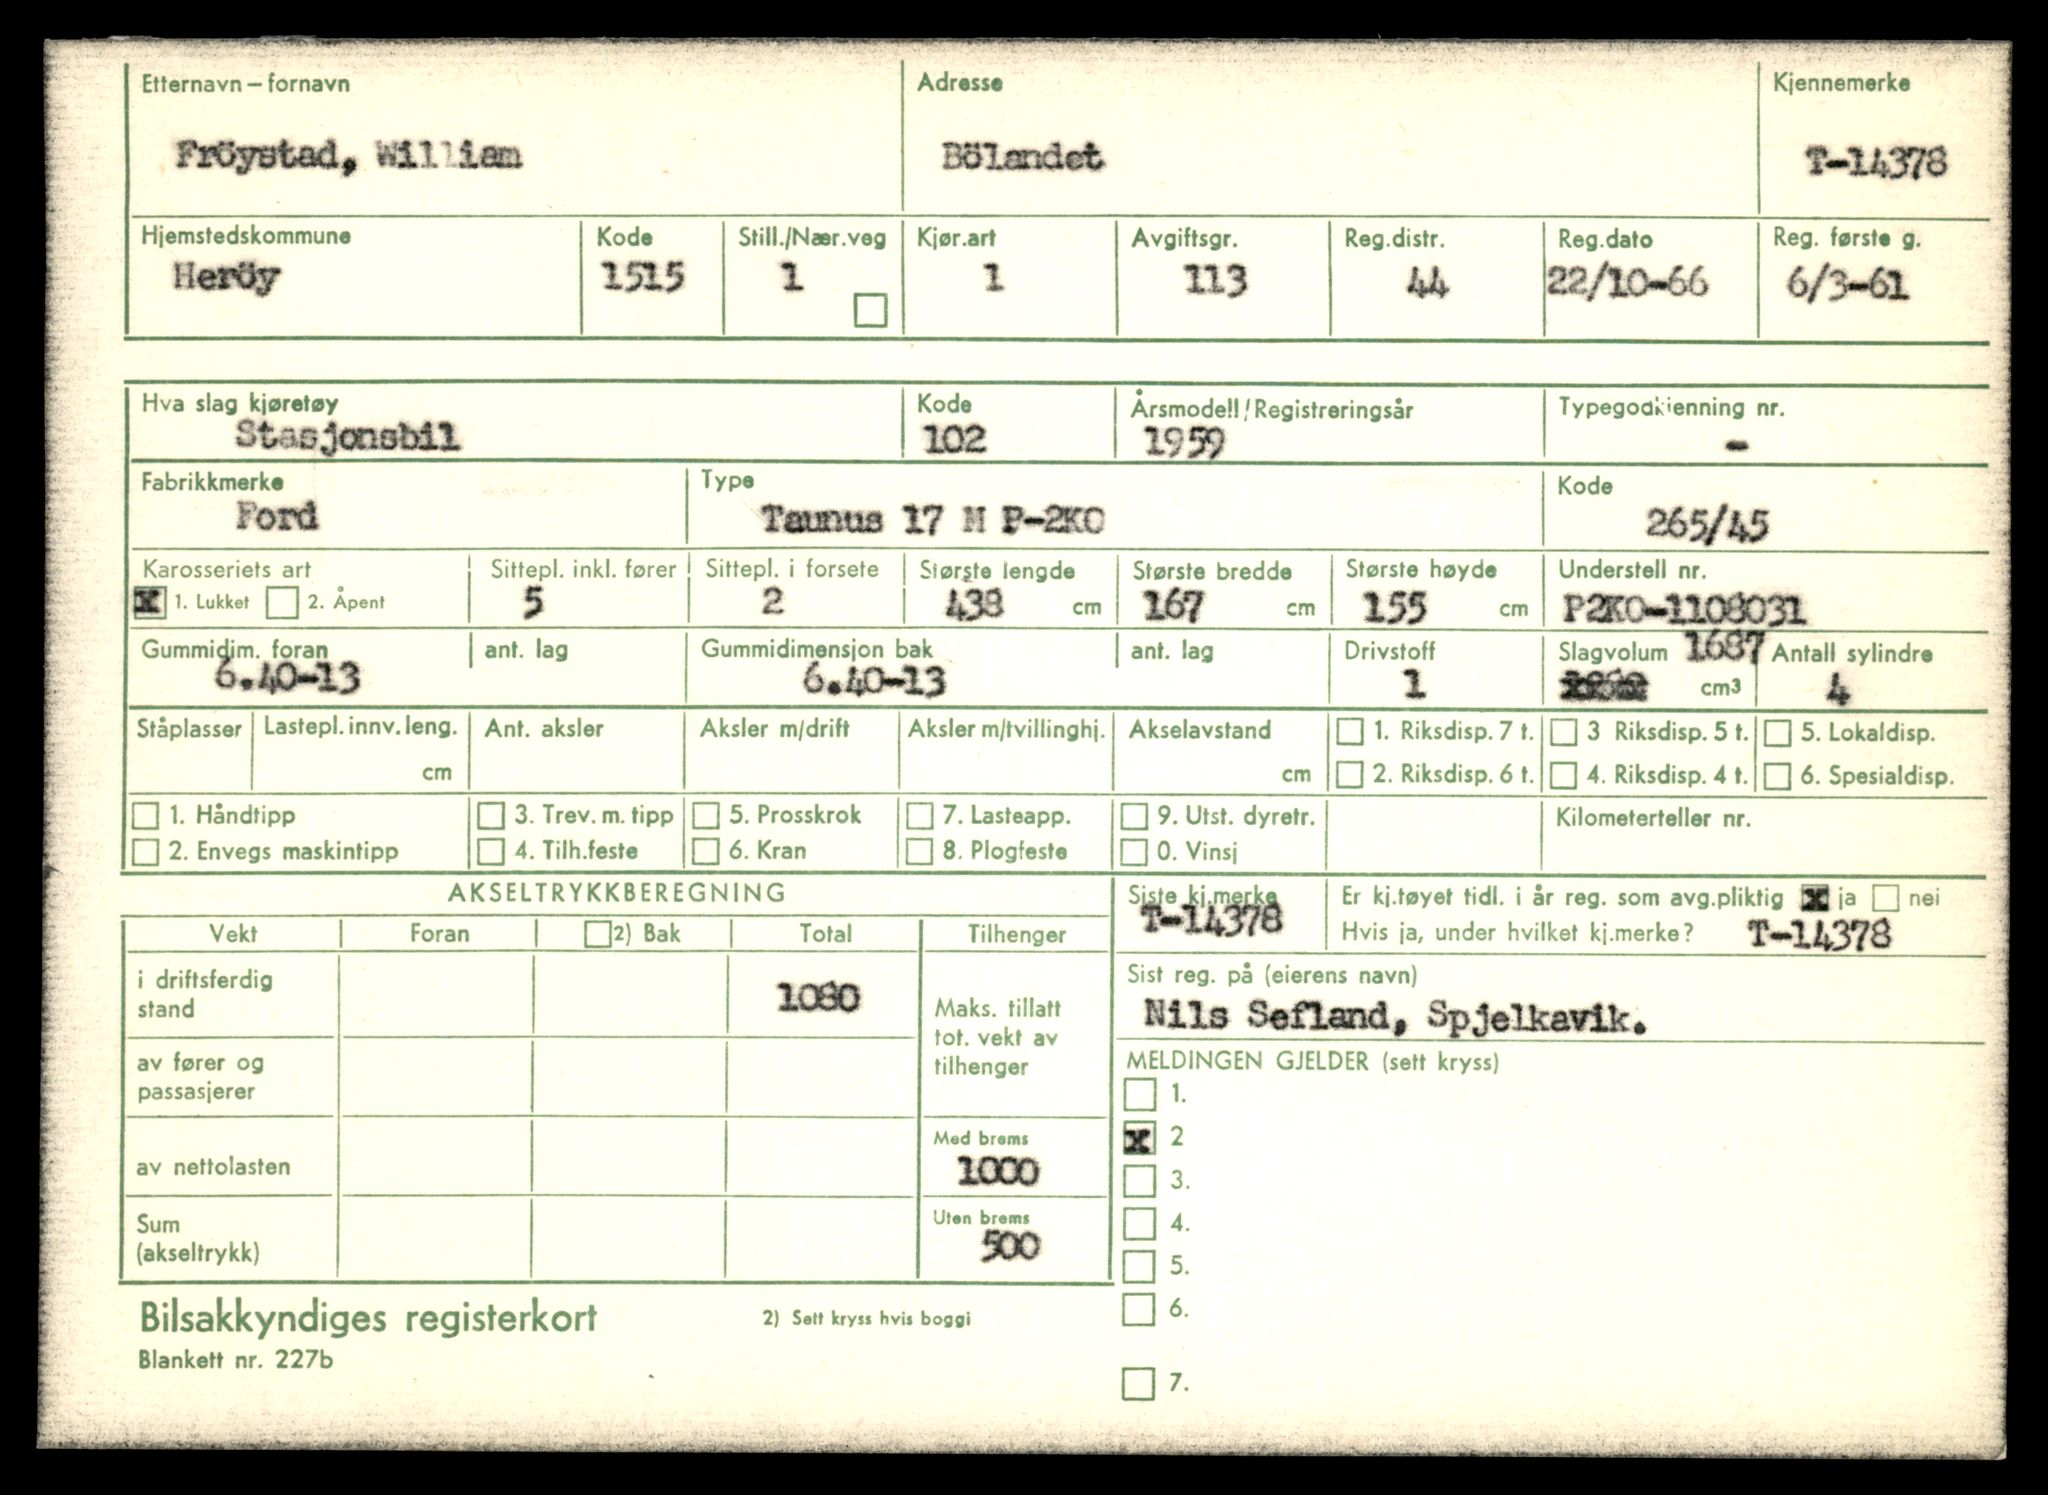 Etternavn – fornavn Adresse Kjennemerke
Fröystad, William Bölandet T-14378
Hjemstedskommune Kode Still./Nær.veg Kjør.art Avgiftsgr. Reg.distr. Reg.dato Reg. første g.
Heröy 1515 1 1 113 44 22/10-66 6/3-61
Hva slag kjøretøy Kode Årsmodell/Registreringsår Typegodkjenning nr.
Stasjonsbil 102 1959 -
Fabrikkmerke Type Kode
Ford Taunus 17 M P-2KO 265/45
Karosseriets art Sittepl. inkl. fører Sittepl. i forsete Største lengde Største bredde Største høyde Understell nr.
X 1. Lukket 2. Åpent 5 2 438 cm 167 cm 155 cm P2KO-1108031
Gummidim. foran ant. lag Gummidimensjon bak ant. lag Drivstoff Slagvolum 1687 Antall sylindre
6.40-13 6.40-13 1 cm3 4
Ståplasser Lastepl. innv. leng. Ant. aksler Aksler m/drift Aksler m/tvillinghj. Akselavstand 1. Riksdisp. 7 t. 3 Riksdisp. 5 t. 5. Lokaldisp.
cm cm 2. Riksdisp. 6 t. 4. Riksdisp. 4 t. 6. Spesialdisp.
1. Håndtipp 3. Trev. m. tipp 5. Prosskrok 7. Lasteapp. 9. Utst. dyretr. Kilometerteller nr.
2. Envegs maskintipp 4. Tilh.feste 6. Kran 8. Plogfeste 0. Vinsj
AKSELTRYKKBEREGNING
Vekt Foran 2) Bak Total Tilhenger
i driftsferdig stand 1080
av fører og passasjerer
av nettolasten
Sum (akseltrykk)
Maks. tillatt tot. vekt av tilhenger
Med brems
1000
Uten brems
500
Siste kj.merke Er kj.tøyet tidl. i år reg. som avg.pliktig X ja nei
T-14378 Hvis ja, under hvilket kj.merke? T-14378
Sist reg. på (eierens navn)
Nils Sefland, Spjelkavik.
MELDINGEN GJELDER (sett kryss)
1.
X 2
3.
4.
5.
6.
7.
Bilsakkyndiges registerkort 2) Sett kryss hvis boggi
Blankett nr. 227b